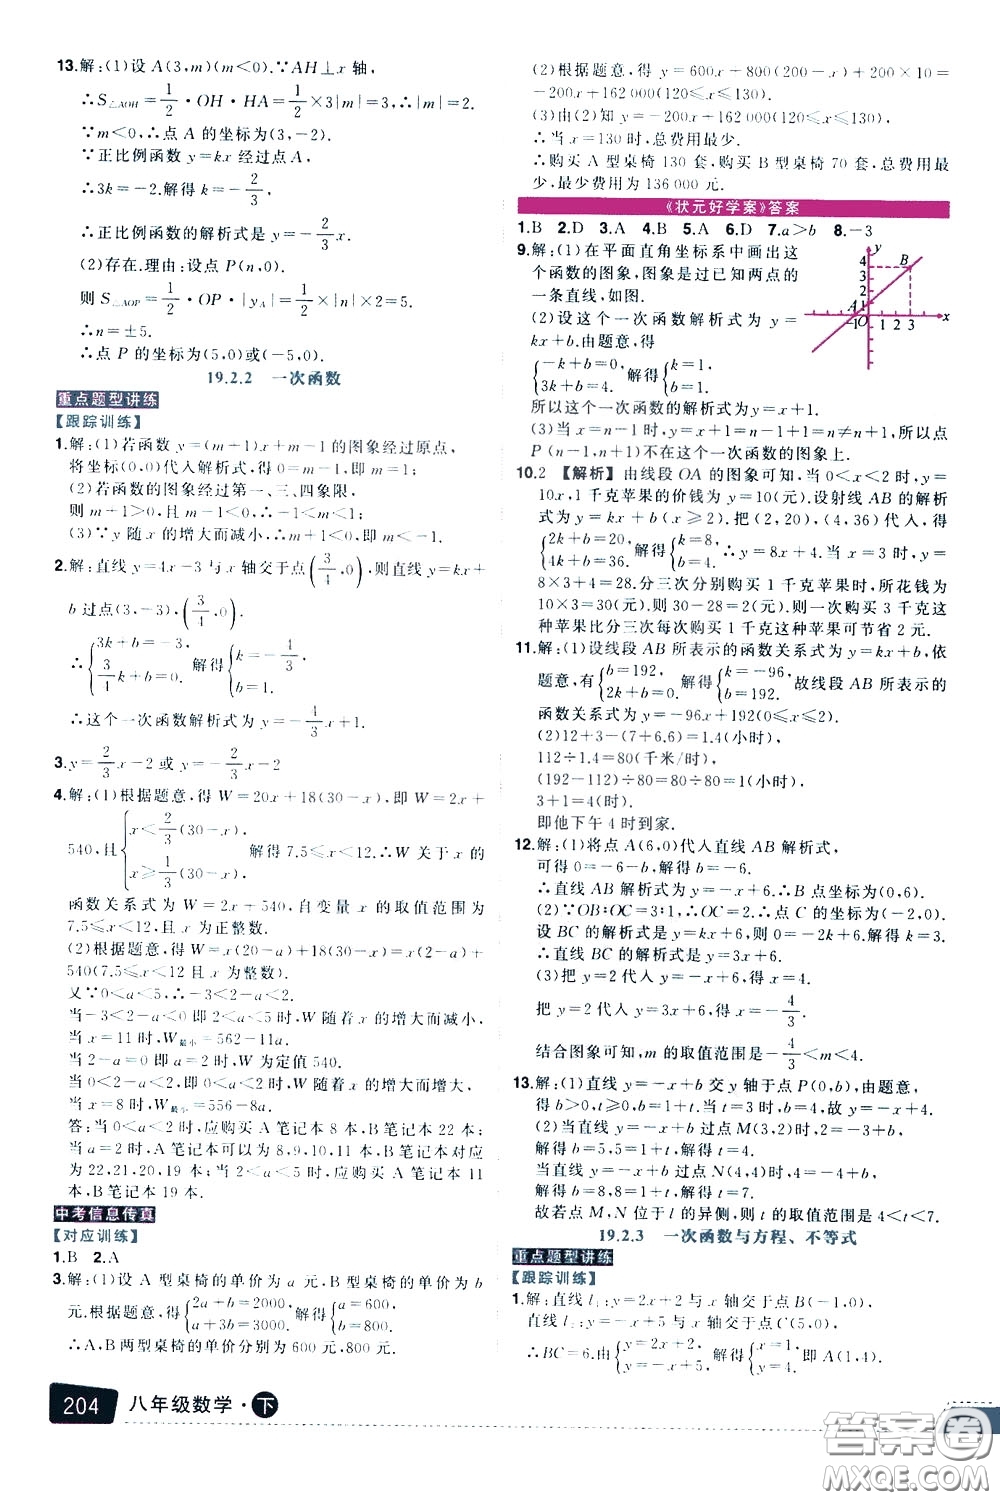 13.解:(1)设 A(3,m)(m<0).∵AH⊥x 轴,
∴S△AOH=1/2·OH·HA=1/2×3|m|=3,∴|m|=2.
∵m<0,∴点 A 的坐标为(3,-2).
∵正比例函数 y=kx 经过点 A,
∴3k=-2.解得 k=-2/3.
∴正比例函数的解析式为 y=-2/3x.
(2)存在.理由:设点 P(n,0),
则 S△AOP=1/2·OP·|yA|=1/2×|n|×2=5.
∴n=±5.
∴点 P 的坐标为(5,0)或(-5,0).
19.2.2 一次函数
重点题型讲练
【跟踪训练】
1.解:(1)若函数 y=(m+1)x+m-1 的图象经过原点,
将坐标(0,0)代入解析式,得 0=m-1,解得 m=1.
(2)若函数的图象经过第一、三、四象限,
则 m+1>0 且 m-1<0,解得-1<m<1.
(3)∵y 随 x 的增大而减小,∴m+1<0,解得 m<-1.
2.解:直线 y=4x-3 与 x 轴交于点(3/4,0),则直线 y=kx+
b 过点(3,-3),(3/4,0).
∴{3k+b=-3, 3/4k+b=0. 解得{k=-4/3, b=1.
∴这个一次函数解析式为 y=-4/3x+1.
3.y=2/3x-2 或 y=-2/3x-2
4.解:(1)根据题意,得 W=20x+18(30-x),即 W=2x+
540,且{x<2/3(30-x), x≥1/3(30-x). 解得 7.5≤x<12.∴W 关于 x 的
函数关系式为 W=2x+540,自变量 x 的取值范围为
7.5≤x<12 且 x 为正整数.
(2)根据题意,得 W=x(20-a)+18(30-x)=(2-a)x+
540(7.5≤x<12 且 x 为整数).
又∵0<a<5,∴-3<2-a<2.
当-3<2-a<0,即 2<a<5 时,W 随着 x 的增大而减小,
当 x=11 时,W最小=562-11a.
当 2-a=0 即 a=2 时,W 为定值 540.
当 0<2-a<2,即 0<a<2 时,W 随着 x 的增大而增大,
当 x=8 时,W最小=556-8a.
答:当 0<a<2 时,应购买 A 笔记本 8 本,B 笔记本 22 本;
当 a=2 时,A 笔记本可以买 8,9,10,11 本,B 笔记本对应
为 22,21,20,19 本;当 2<a<5 时,应购买 A 笔记本 11
本,B 笔记本 19 本.
中考信息传真
【对应训练】
1.B 2.A
3.解:(1)设 A 型桌椅的单价为 a 元,B 型桌椅的单价为 b
元.根据题意,得{2a+b=2000, a+3b=3000. 解得{a=600, b=800.
∴A,B 两型桌椅的单价分别为 600 元,800 元.
204 八年级数学·下
(2)根据题意,得 y=600x+800(200-x)+200×10=
-200x+162 000(120≤x≤130).
(3)由(2)知 y=-200x+162 000(120≤x≤130),
∴当 x=130 时,总费用最少.
∴购买 A 型桌椅 130 套,购买 B 型桌椅 70 套,总费用最
少,最少费用为 136 000 元.
《状元好学案》答案
1.B 2.D 3.A 4.B 5.A 6.D 7.a>b 8.-3
9.解:(1)在平面直角坐标系中画出这
个函数的图象,图象是过已知两点的
一条直线,如图.
(2)设这个一次函数解析式为 y=
kx+b.由题意,得
{-k+b=0, 3k+b=4. 解得{k=1, b=1.
所以这个一次函数的解析式为 y=x+1.
(3)当 x=n-1 时,y=x+1=n-1+1=n≠n+1,所以点
P(n-1,n+1)不在这个一次函数的图象上.
y 4 3 2 1 A B -1 O 1 2 3 x
10.2 【解析】由线段 OA 的图象可知,当 0<x<2 时,y=
10x,1 千克苹果的价钱为 y=10(元).设射线 AB 的解析
式为 y=kx+b(x≥2).把(2,20),(4,36)代入,得
{2k+b=20, 4k+b=36. 解得{k=8, b=4. ∴y=8x+4.当 x=3 时,y=
8×3+4=28.分三次分别购买 1 千克苹果时,所花钱为
10×3=30(元).则 30-28=2(元).则一次购买 3 千克这
种苹果比分三次每次购买 1 千克这种苹果可节省 2 元.
11.解:(1)设线段 AB 所表示的函数关系式为 y=kx+b,依
题意,有{b=192, 2k+b=0. 解得{k=-96, b=192. 故线段 AB 所表示的
函数关系式为 y=-96x+192(0≤x≤2).
(2)12+3-(7+6.6)=1.4(小时),
112÷1.4=80(千米/时),
(192-112)÷80=80÷80=1(小时),
3+1=4(时).
即他下午 4 时到家.
12.解:(1)将点 A(6,0)代入直线 AB 解析式,
可得 0=-6-b,解得 b=-6.
∴直线 AB 解析式为 y=-x+6.∴B 点坐标为(0,6).
(2)∵OB∶OC=3∶1,∴OC=2.∴点 C 的坐标为(-2,0).
设 BC 的解析式是 y=kx+6,则 0=-2k+6,解得 k=3.
∴直线 BC 的解析式是 y=3x+6.
(3)把 y=2 代入 y=-x+6,得 x=4.
把 y=2 代入 y=3x+6,得 x=-4/3.
结合图象可知,m 的取值范围是-4/3<m<4.
13.解:(1)直线 y=-x+b 交 y 轴于点 P(0,b),由题意,
得 b>0,t≥0,b=1+t.当 t=3 时,b=4,故 y=-x+4.
(2)当直线 y=-x+b 过点 M(3,2)时,2=-3+b,
解得 b=5,5=1+t,解得 t=4.
当直线 y=-x+b 过点 N(4,4)时,4=-4+b,
解得 b=8,8=1+t,解得 t=7.
故若点 M,N 位于 l 的异侧,则 t 的取值范围 4<t<7.
19.2.3 一次函数与方程、不等式
重点题型讲练
【跟踪训练】
1.解:直线 l₁:y=2x+2 与 x 轴交于点 B(-1,0),
直线 l₂:y=-x+5 与 x 轴交于点 C(5,0),
∴BC=6.由{y=2x+2, y=-x+5. 解得{x=1, y=4. 即 A(1,4).
答案圈
MXQE.COM